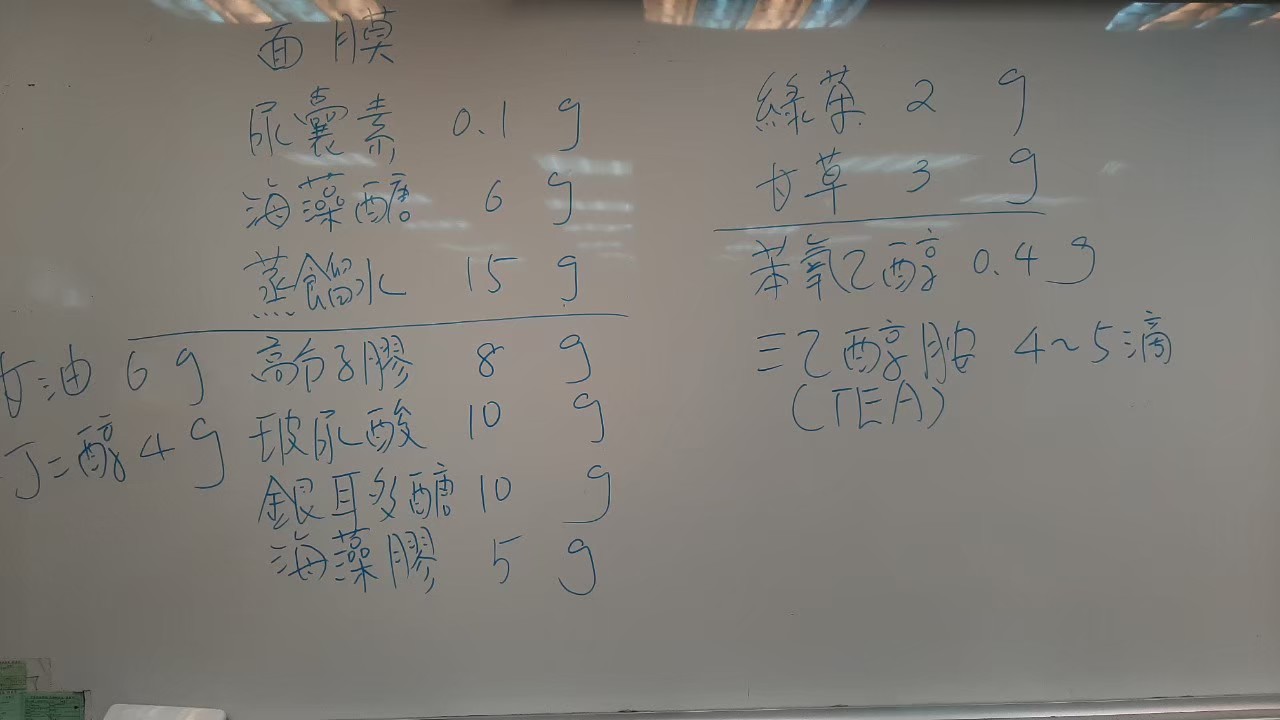 面膜
尿囊素 0.1 g
海藻醣 6 g
蒸餾水 15 g
甘油 6 g
高分子膠 8 g
丁二醇 4 g
玻尿酸 10 g
銀耳多醣 10 g
海藻膠 5 g
綠茶 2 g
甘草 3 g
苯氧乙醇 0.4 g
三乙醇胺 4~5滴
(TEA)